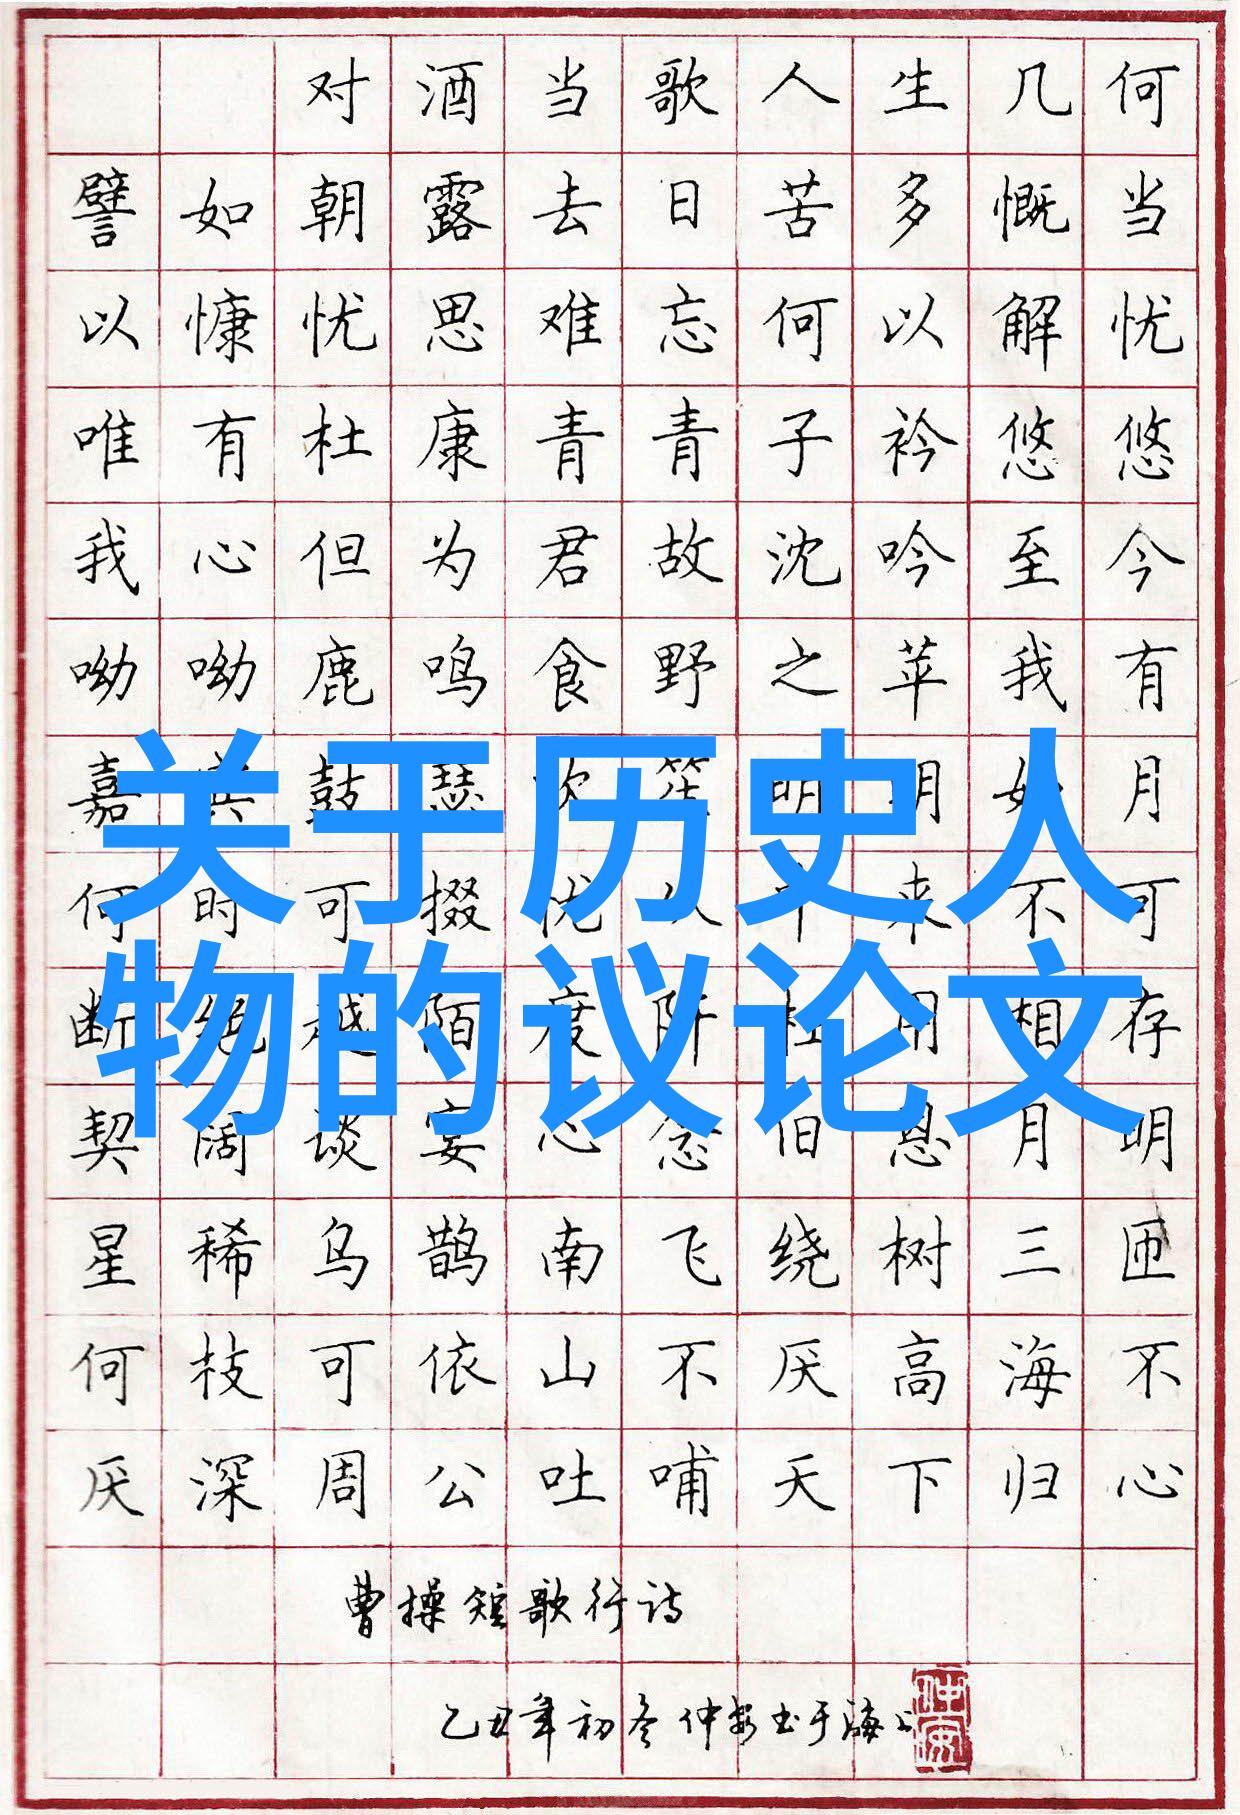 对酒当歌人生几何
譬如朝露去日苦多慨当
以慷忧思难忘何以解忧
唯有杜康青青子衿悠悠
我心但为君故沈吟至今
呦呦鹿鸣食野之苹我有
嘉宾鼓瑟吹笙明明如月
关于历史人
何时可掇忧从中来不可
断绝越陌度阡枉用相存
物的议论文
契阔谈宴心念旧恩月明
星稀乌鹊南飞绕树三匝
何枝可依山不厌高海不
厌深周公吐哺天下归心
曹操短歌行诗
乙丑年初冬仲安书于海上
仲安